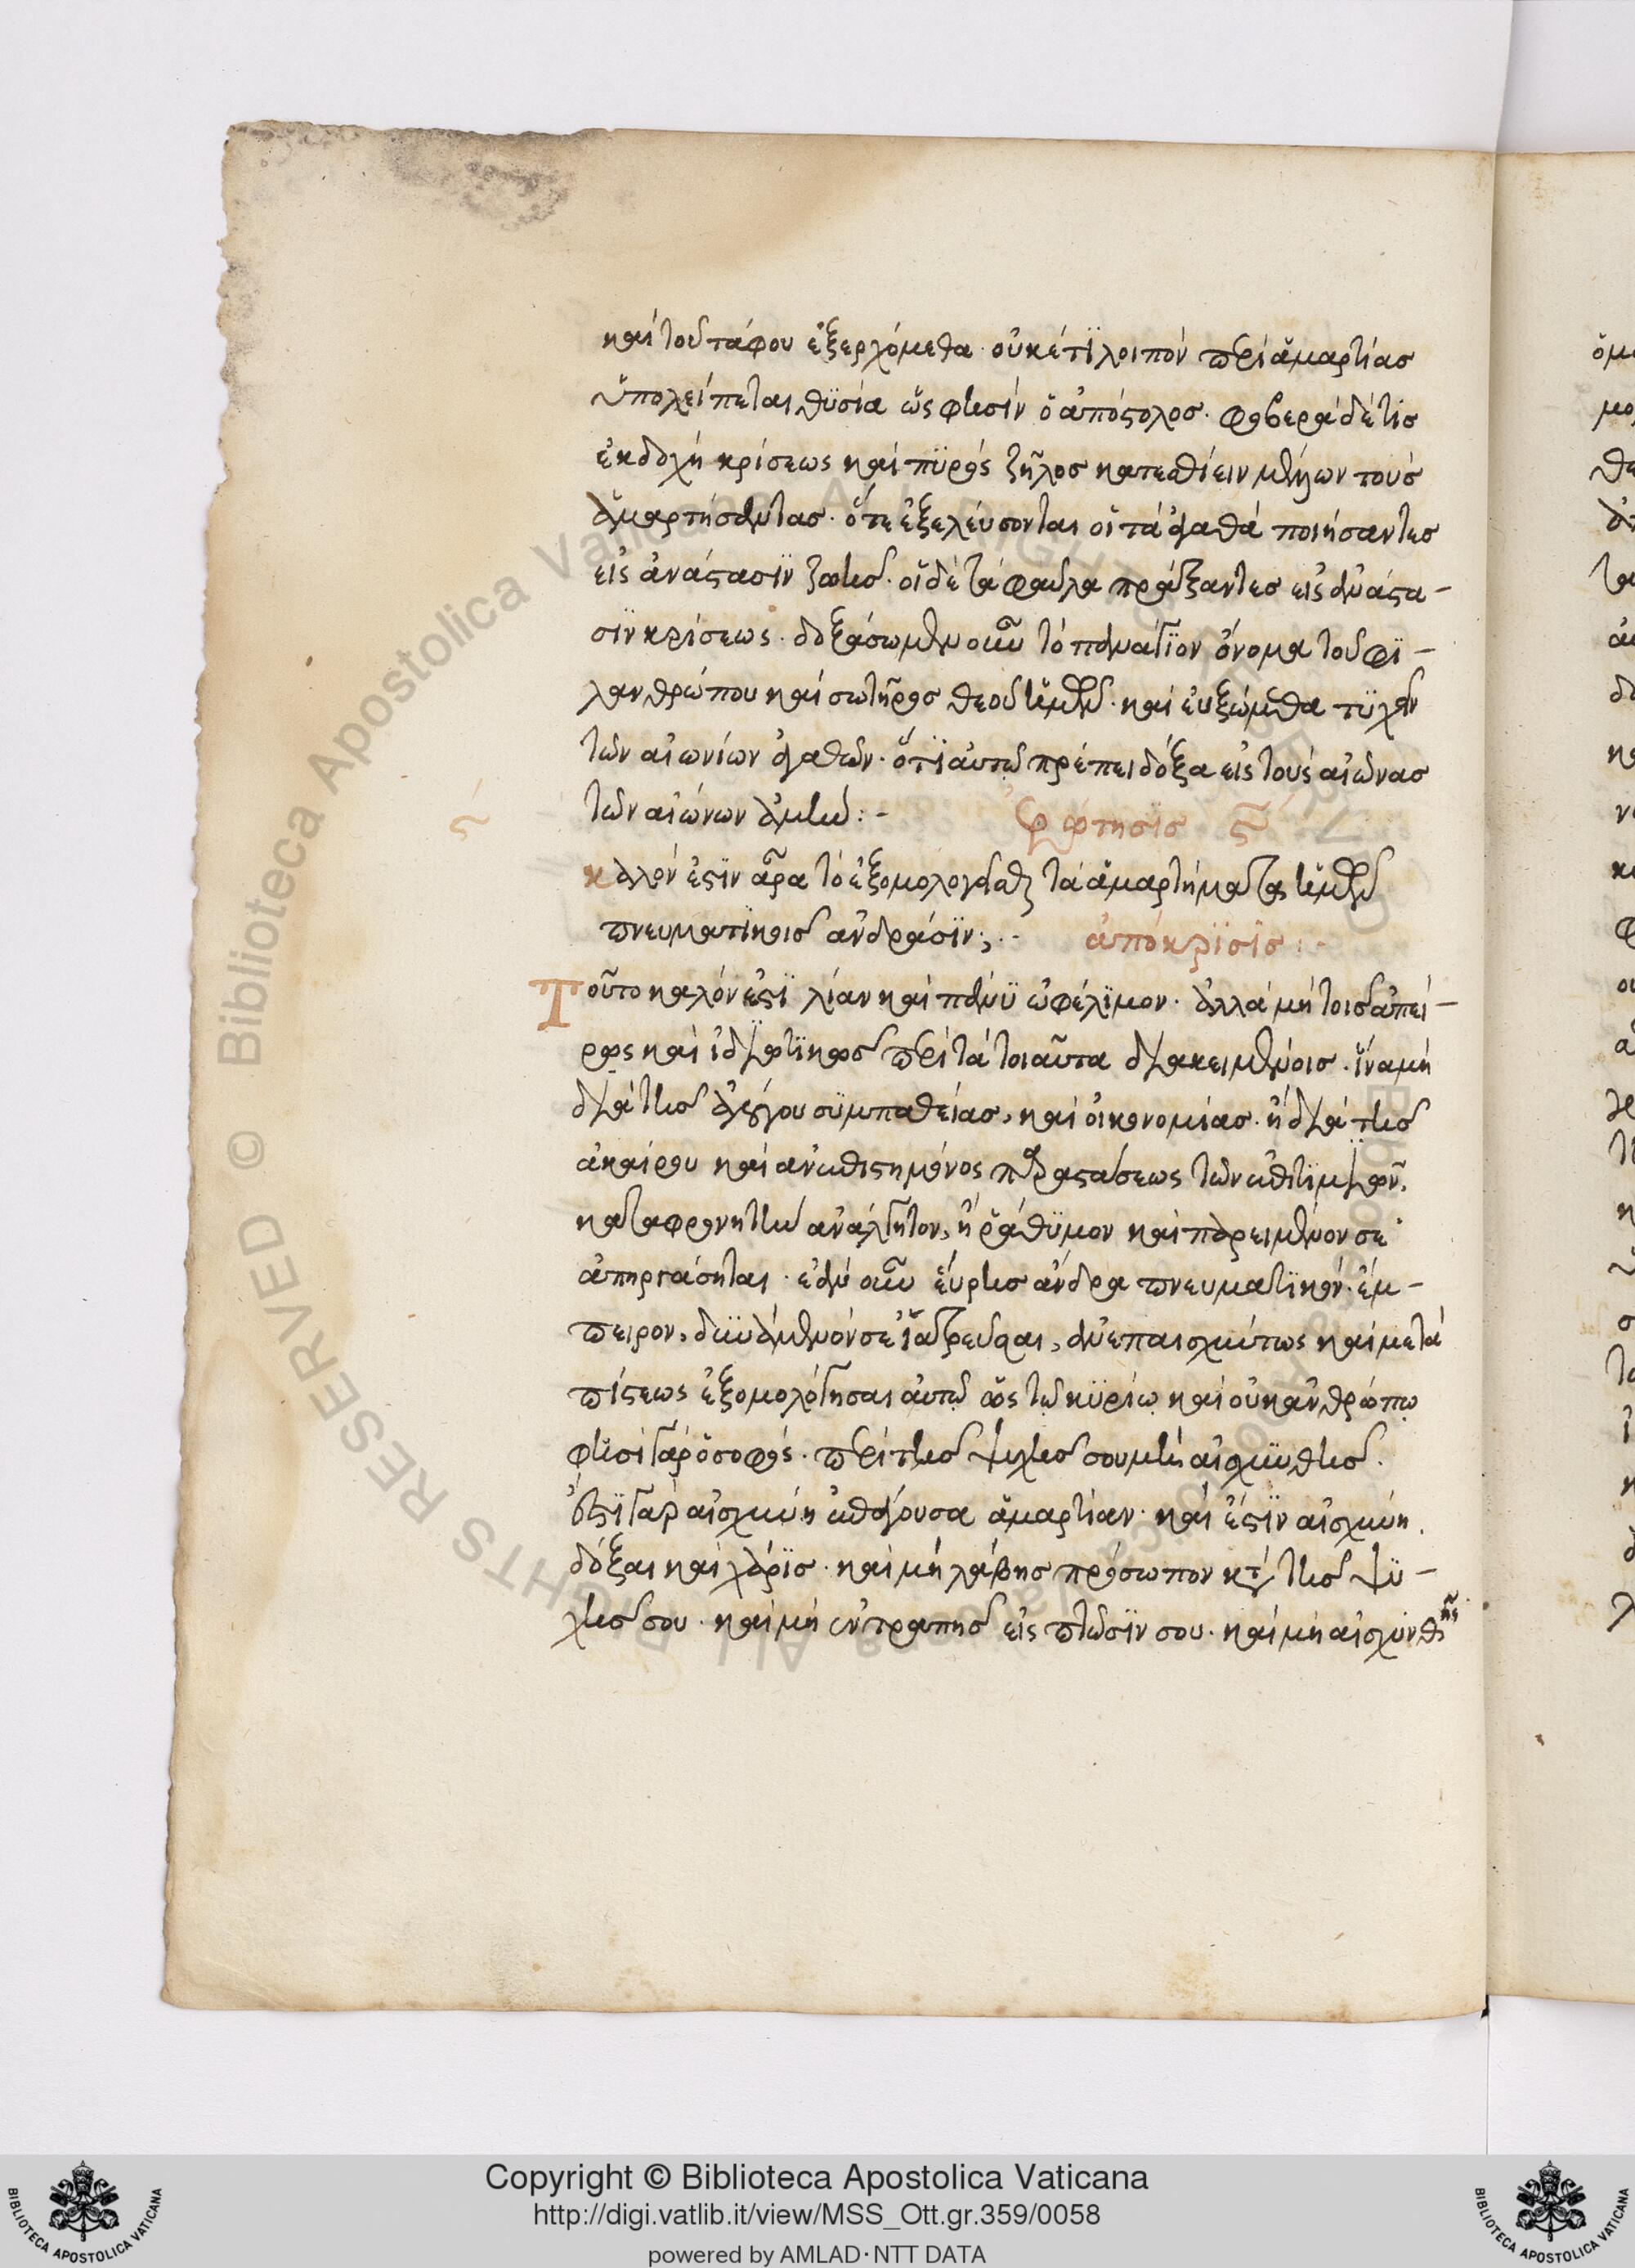 καὶ τοῦ τάφου ἐξερχόμεθα· οὐκέτϊ λοιπὸν περὶ ἁμαρτίας
ὑπολείπεται θϋσία ὥς φησὶν ὁ ἀπόστολος· φοβερὰ δέ τις
ἐκδοχὴ κρίσεως καὶ πϋρὸς ζῆλος κατεσθίειν μέλλων τοὺς
ἁμαρτήσαντας· ὅτε ἐξελεύσονται οἱ τὰ ἀγαθὰ ποιήσαντες
εἰς ἀνάστασϊν ζωῆς· οἱ δὲ τὰ φαῦλα πράξαντες εἰς ἀνάστα-
σϊν κρίσεως· δοξάσωμεν οὖν τὸ πανάγϊον ὄνομα τοῦ φϊ-
λανθρώπου καὶ σωτῆρος θεοῦ ἡμῶν· καὶ εὐξώμεθα τϋχεῖν
τῶν αἰωνίων ἀγαθῶν· ὅτϊ αὐτῶ πρέπει δόξα εἰς τοὺς αἰῶνας
τῶν αἰώνων ἀμήν:-
Ἐρώτησϊς ϛ
καλὸν ἐστὶν ἆρα τὸ ἐξομολογεῖσθαι τὰ ἁμαρτήματα ἡμῶν
πνευματϊκοῖς ἀνδράσϊν;·-
ἀπόκρϊσϊς:-
Τοῦτο καλὸν ἐστϊ λίαν καὶ πάνϋ ὠφέλϊμον· ἀλλὰ μὴ τοῖς ἀπεί-
ροις καὶ ἰδιωτϊκοῖς περὶ τὰ τοιαῦτα διακειμένοις· ἵνα μὴ
διὰ τῆς ἀλόγου σϋμπαθείας, καὶ οἰκονομίας· ἢ διὰ τῆς
ἀκαίρου καὶ ἀνεπιστημόνος τῶν ἐπιτϊμιῶν,
καταφρονητὴν ἀνάλγητον, ἢ ῥάθϋμον καὶ παρειμένον σε
ἀπηργάσηται· ἐὰν οὖν εὕρης ἄνδρα πνευματϊκὸν· ἔμ-
πειρον, δϋνάμενόν σε ἰατρεῦσαι, ἀνεπαισχύντως καὶ μετὰ
πίστεως ἐξομολόγησαι αὐτῷ ὡς τῷ κϋρίῳ καὶ οὐκ ἀνθρώπῳ
φησὶ γὰρ ὁ σοφός· περὶ τῆς ψυχῆς σου μὴ αἰσχϋνθῆς·
ἔστϊ γὰρ αἰσχύνη ἐπάγουσα ἁμαρτίαν· καὶ ἔστϊν αἰσχύνη,
δόξαι καὶ χάρϊς· καὶ μὴ λάβης πρόσωπον κατὰ τῆς ψϋ-
χῆς σου· καὶ μὴ ἐντραπῆς εἰς πτῶσϊν σου· καὶ μὴ αἰσχυνθῆς
Copyright © Biblioteca Apostolica Vaticana
http://digi.vatlib.it/view/MSS_Ott.gr.359/0058
powered by AMLAD·NTT DATA